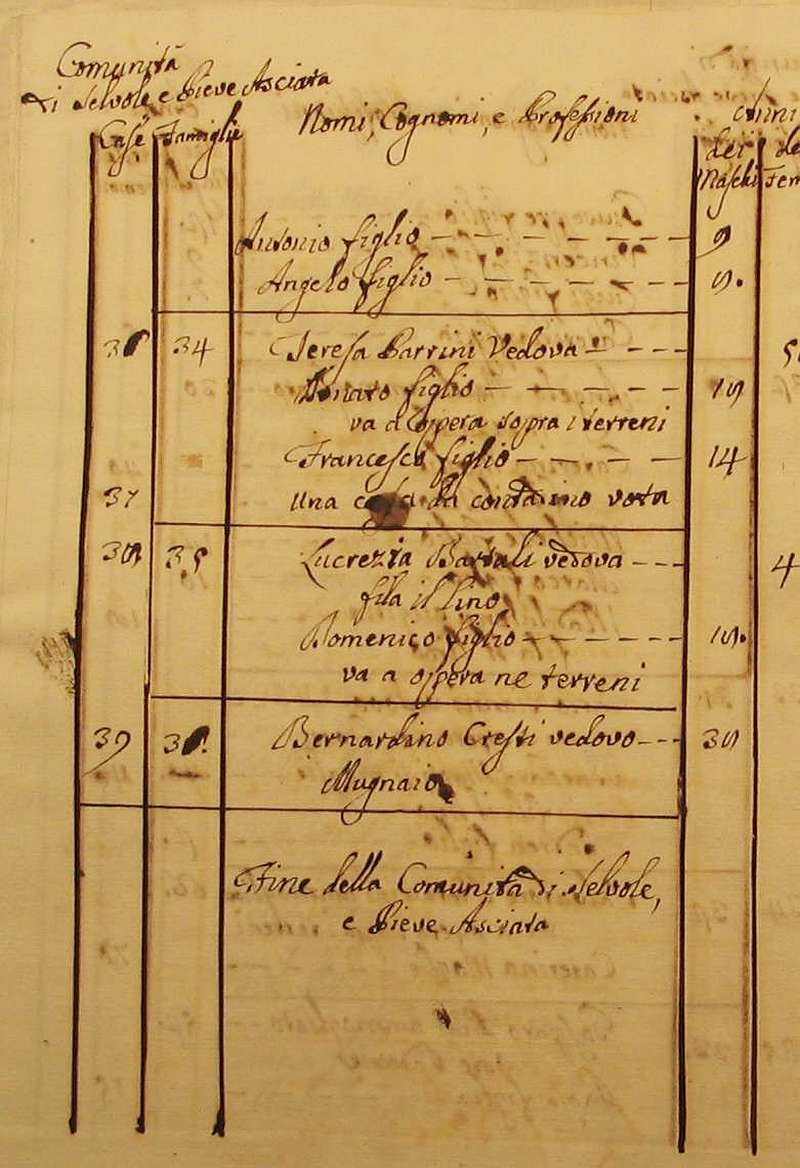 Comunità
di Selvole, e Pieve Asciata
Case Famiglie Nomi, Cognomi, e Professioni Anni
dei
Maschi Fem
Antonio figlio 9
Angelo figlio
34 Teresa Barrini Vedova
Donato figlio
va a Opera sopra i terreni
Francesco figlio 14
37 Una casa da contadino vota
35 Lucrezia Bartali vedova 4
fila il lino
Domenico figlio
va a opera ne terreni
39 Bernardino Cresti vedovo
Mugnaio
Fine della Comunità di Selvole,
e Pieve Asciata